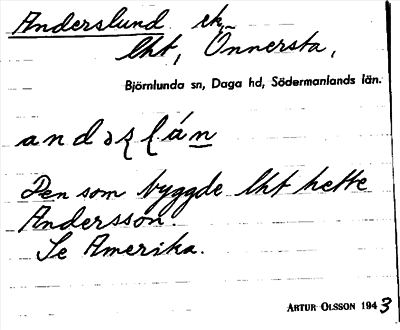 Anderslund rk
lht, Onnersta,
Björnlunda sn, Daga hd, Södermanlands län.
Den som byggde lht hette
Andersson.
Se Amerika.
ARTUR OLSSON 1943